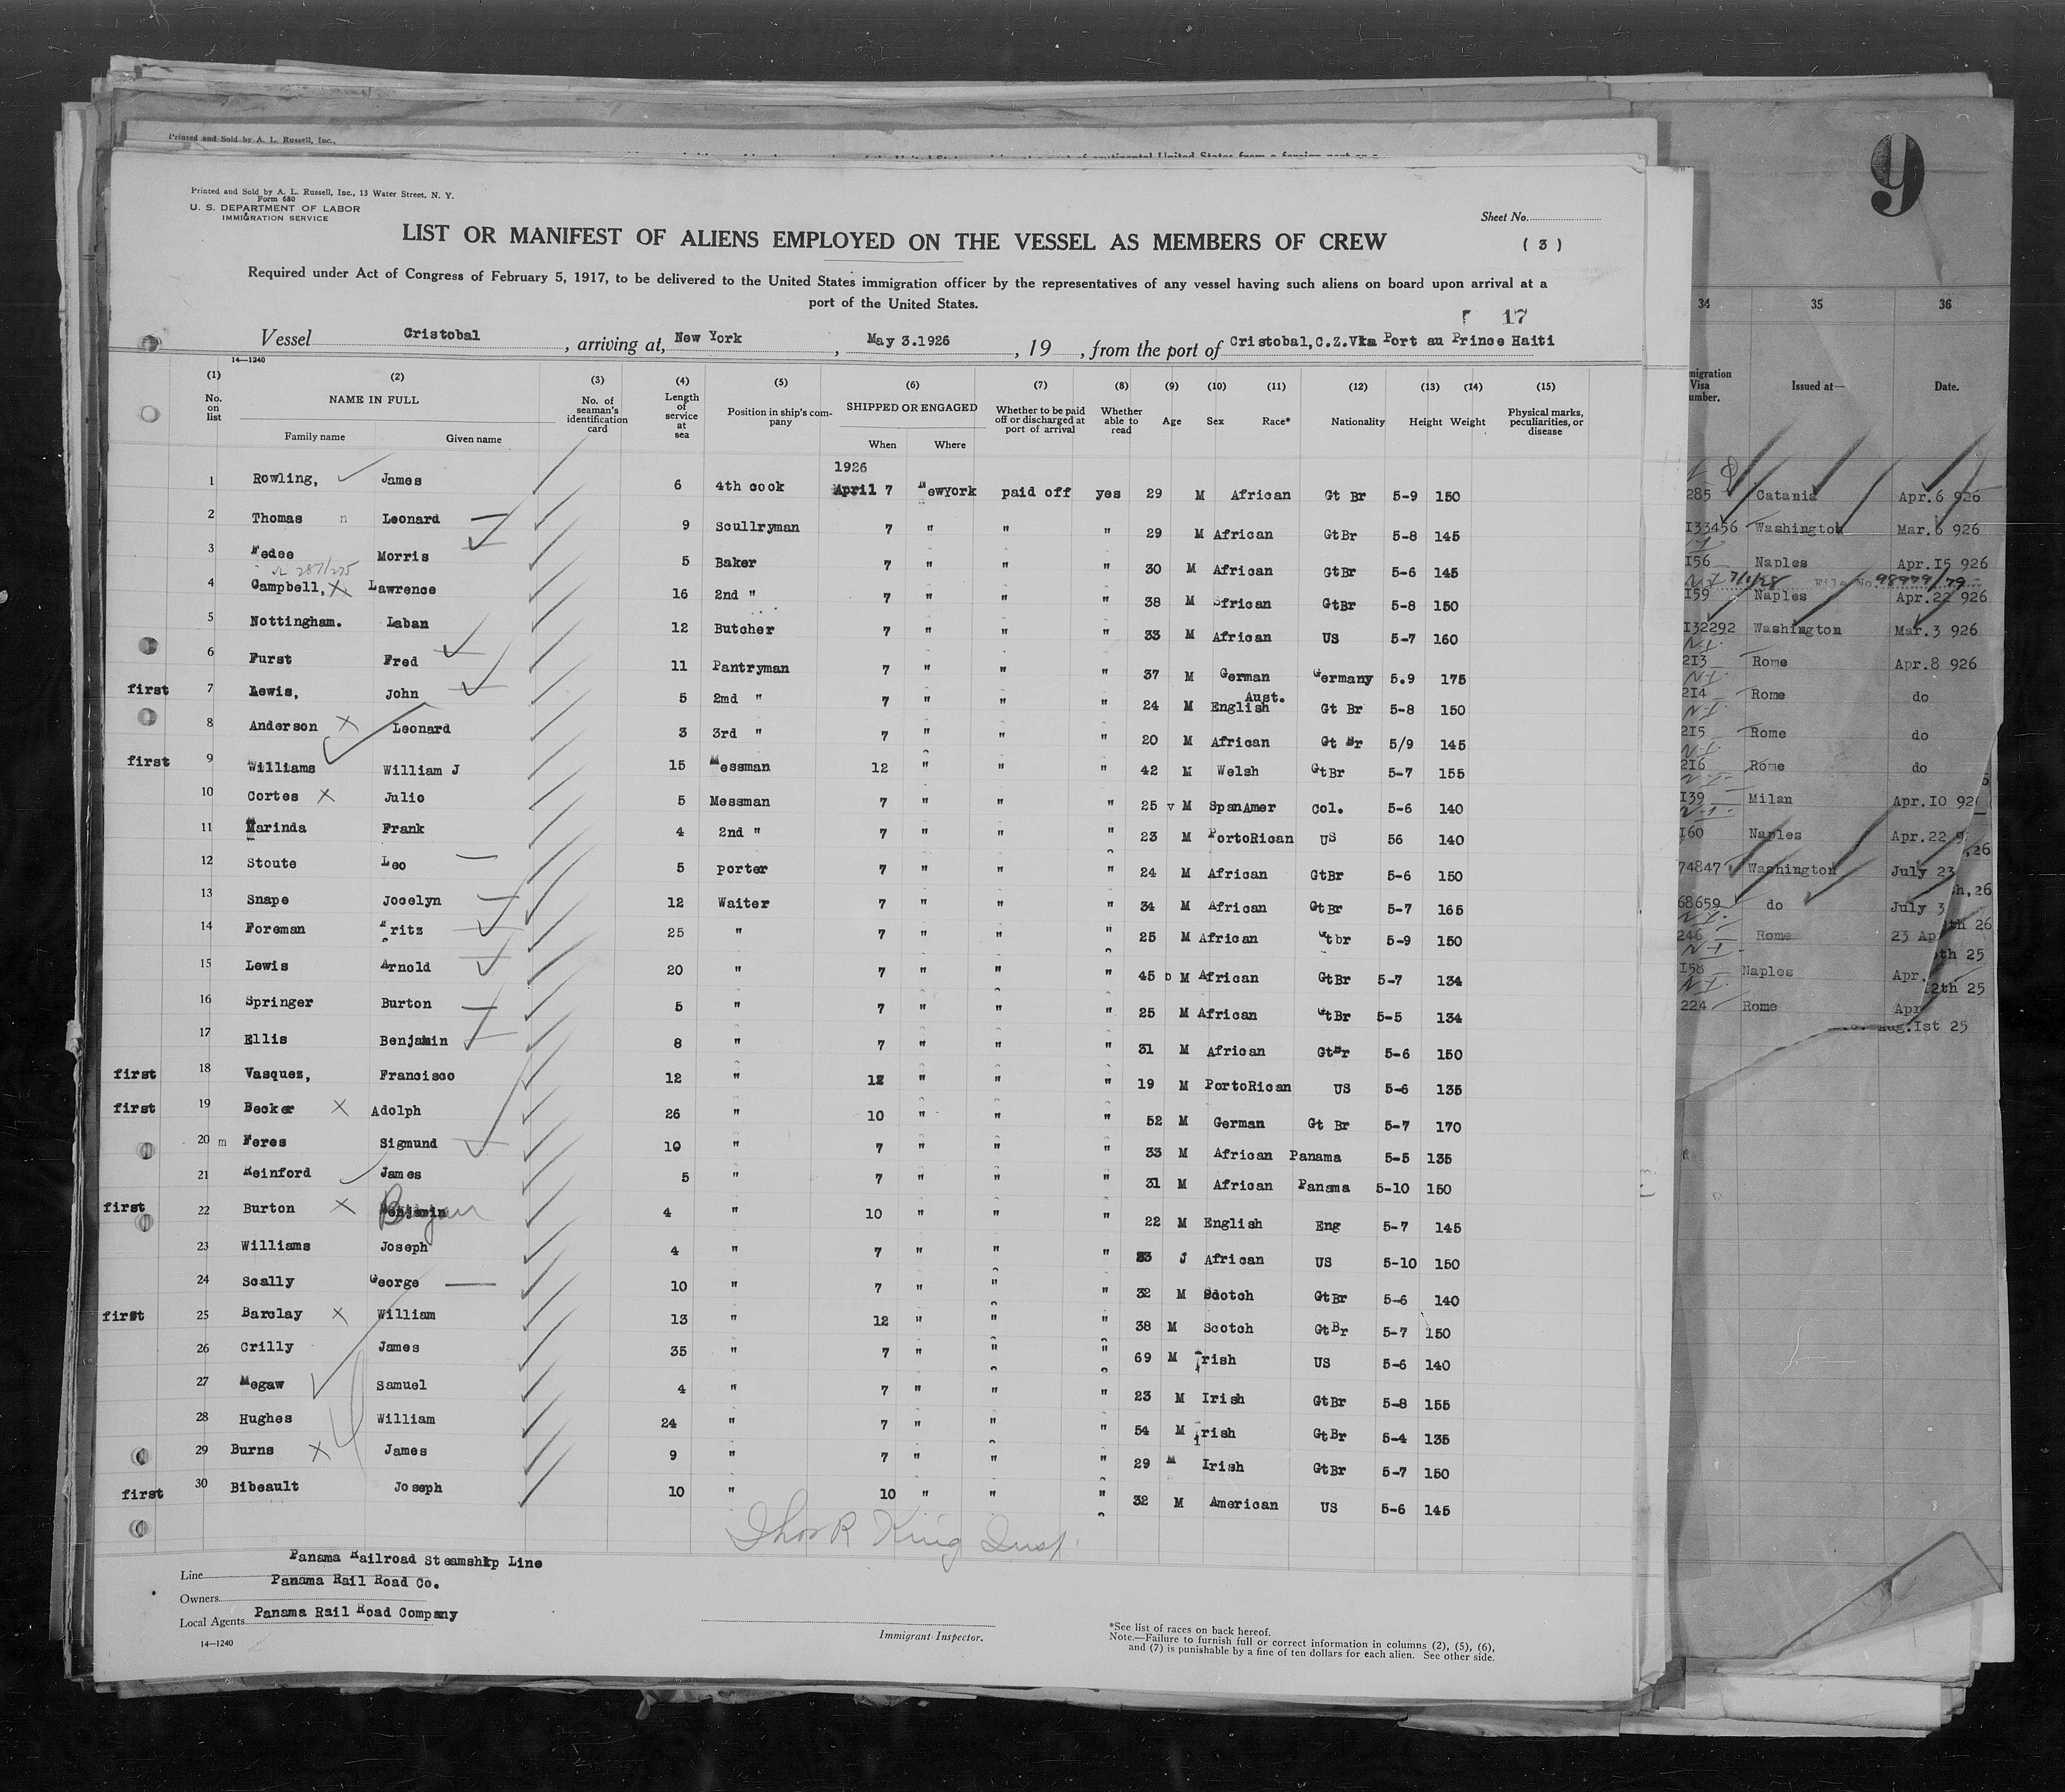 Printed and Sold by A. L. Russell, Inc.,
9
Printed and Sold by A. L. Russell, Inc., 13 Water Street, N. Y.
Form 680
U. S. DEPARTMENT OF LABOR
IMMIGRATION SERVICE
Sheet No.
LIST OR MANIFEST OF ALIENS EMPLOYED ON THE VESSEL AS MEMBERS OF CREW
( 3 )
Required under Act of Congress of February 5, 1917, to be delivered to the United States immigration officer by the representatives of any vessel having such aliens on board upon arrival at a
port of the United States.
17
Vessel Cristobal, arriving at, New York, May 3.1926, 19, from the port of Cristobal,C.Z.Via Port au Prince Haiti
14—1240
(1) (2) (3) (4) (5) (6) (7) (8) (9) (10) (11) (12) (13) (14) (15)
No. on list NAME IN FULL No. of seaman's identification card Length of service at sea Position in ship's company SHIPPED OR ENGAGED Whether to be paid off or discharged at port of arrival Whether able to read Age Sex Race* Nationality Height Weight Physical marks, peculiarities, or disease
Family name Given name When Where
1926
1 Rowling, James 6 4th cook April 7 NewYork paid off yes 29 M African Gt Br 5-9 150
2 Thomas n Leonard 9 Scullryman 7 " " " 29 M African GtBr 5-8 145
3 Morris 5 Baker 7 " " " 30 M African GtBr 5-6 145
4 Campbell, X Lawrence 16 2nd " 7 " " " 38 M African GtBr 5-8 150
5 Nottingham. Laban 12 Butcher 7 " " " 33 M African US 5-7 160
6 Furst Fred 11 Pantryman 7 " " " 37 M German Germany 5.9 175
first 7 Lewis, John 5 2md " 7 " " " 24 M English Aust. Gt Br 5-8 150
8 Anderson X Leonard 3 3rd " 7 " " " 20 M African Gt Br 5/9 145
first 9 Williams William J 15 Messman 12 " " " 42 M Welsh GtBr 5-7 155
10 Cortes X Julio 5 Messman 7 " " " 25 v M SpanAmer Col. 5-6 140
11 Marinda Frank 4 2nd " 7 " " " 23 M PortoRican US 56 140
12 Stoute Leo 5 porter 7 " " " 24 M African GtBr 5-6 150
13 Snape Jocelyn 12 Waiter 7 " " " 34 M African GtBr 5-7 165
14 Foreman Fritz 25 " 7 " " " 25 M African Gtbr 5-9 150
15 Lewis Arnold 20 " 7 " " " 45 b M African GtBr 5-7 134
16 Springer Burton 5 " 7 " " " 25 M African GtBr 5-5 134
17 Ellis Benjamin 8 " 7 " " " 31 M African GtBr 5-6 150
first 18 Vasquez, Francisco 12 " 12 " " " 19 M PortoRican US 5-6 135
first 19 Becker X Adolph 26 " 10 " " " 52 M German Gt Br 5-7 170
20 m Feres Sigmund 10 " 7 " " " 33 M African Panama 5-5 135
21 Reinford James 5 " 7 " " " 31 M African Panama 5-10 150
first 22 Burton X Benjamin 4 " 10 " " " 22 M English Eng 5-7 145
23 Williams Joseph 4 " 7 " " " J African US 5-10 150
24 Scally George 10 " 7 " " " 32 M Scotch GtBr 5-6 140
first 25 Barclay X William 13 " 12 " " " 38 M Scotch GtBr 5-7 150
26 Crilly James 35 " 7 " " " 69 M Irish US 5-6 140
27 Megaw Samuel 4 " 7 " " " 23 M Irish GtBr 5-8 155
28 Hughes William 24 " 7 " " " 54 M Irish GtBr 5-4 135
29 Burns X James 9 " 7 " " " 29 M Irish GtBr 5-7 150
first 30 Bibeault Joseph 10 " 10 " " " 32 M American US 5-6 145
Thos R King Insp
Line Panama Railroad Steamship Line
Owners Panama Rail Road Co.
Local Agents Panama Rail Road Company
14—1240
Immigrant Inspector.
*See list of races on back hereof.
Note.—Failure to furnish full or correct information in columns (2), (5), (6),
and (7) is punishable by a fine of ten dollars for each alien. See other side.
34 35 36
Issued at— Date.
285 Catania Apr.6 926
I33456 Washington Mar.6 926
I56 Naples Apr.I5 926
7/1/28 File No. 98979/79
I59 Naples Apr.22 926
I32292 Washington Mar.3 926
2I3 Rome Apr.8 926
2I4 Rome do
2I5 Rome do
2I6 Rome do
I39 Milan Apr.IO 92
I60 Naples Apr.22 9
,26
74847 Washington July 23
h,26
68659 do July 3
th 26
246 Rome 23 Ap
th 25
I58 Naples Apr.
I2th 25
224 Rome Apr
Aug.Ist 25